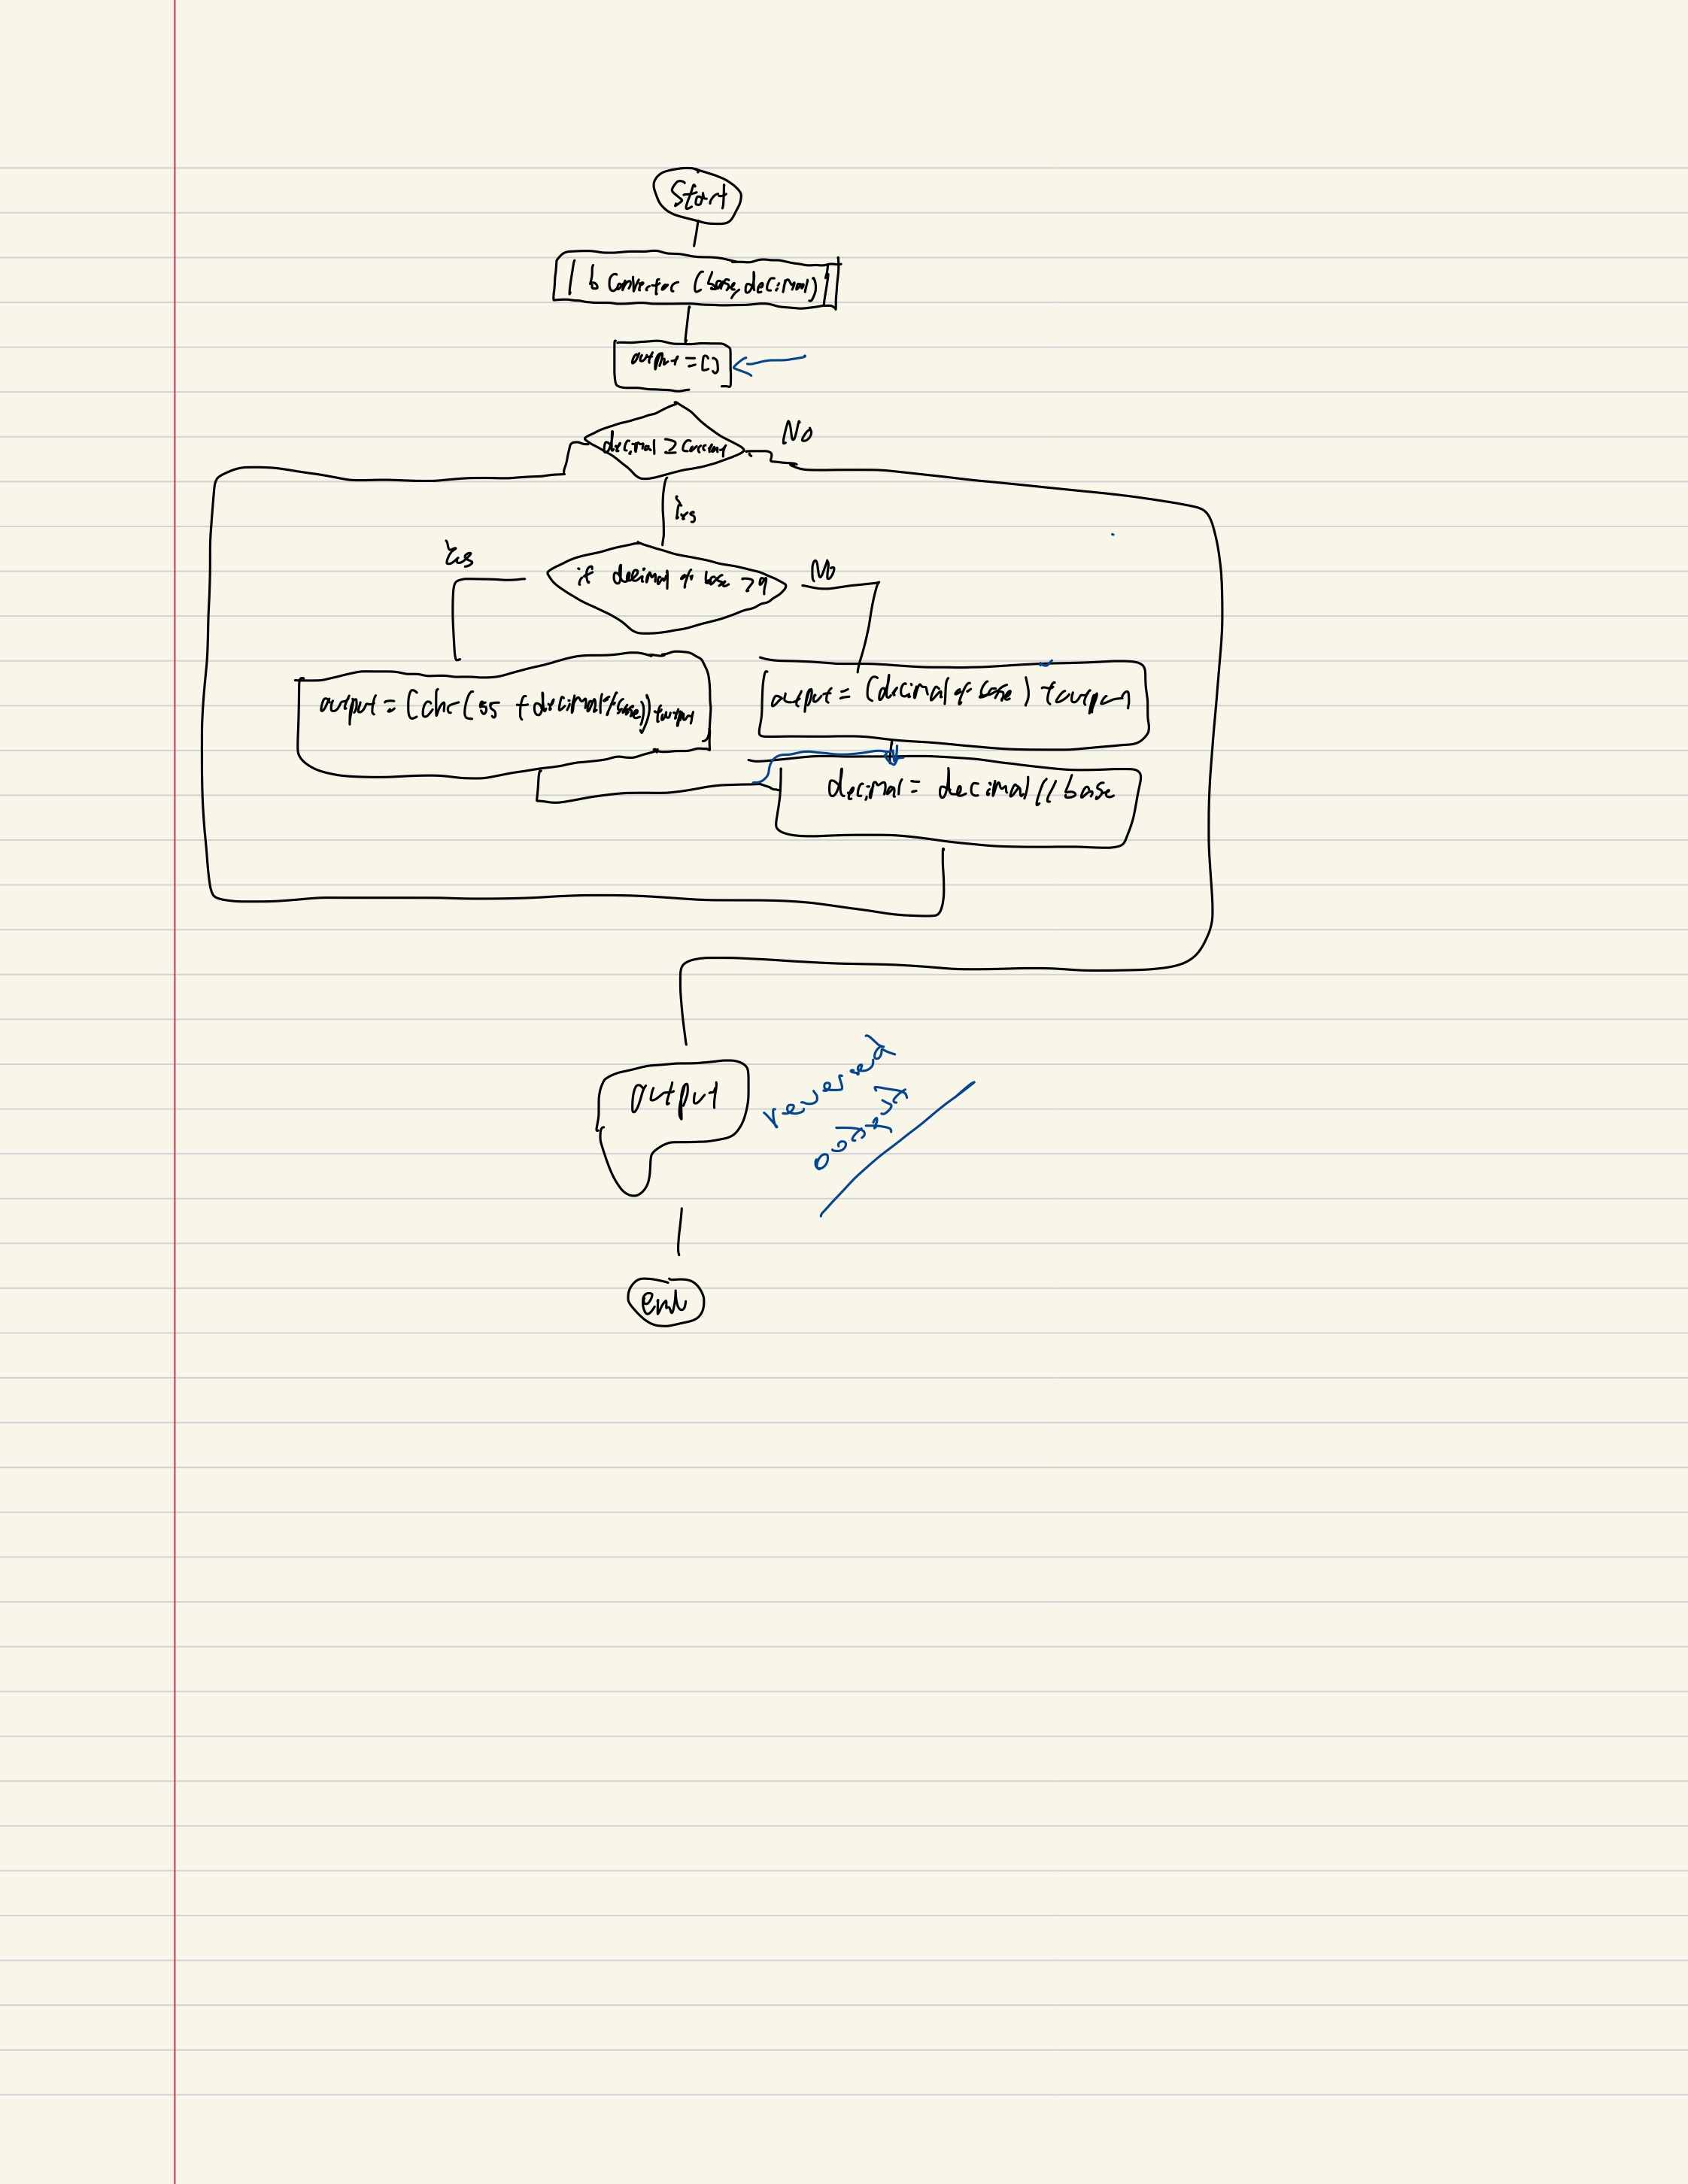 Start
b Convertor (base, decimal)
output = []
decimal ≥ current
No
Yes
if decimal % base > 9
Yes
No
output = (chr(55 + decimal % base)) + output
output = (decimal % base) + output
decimal = decimal // base
output
reversed
output
end